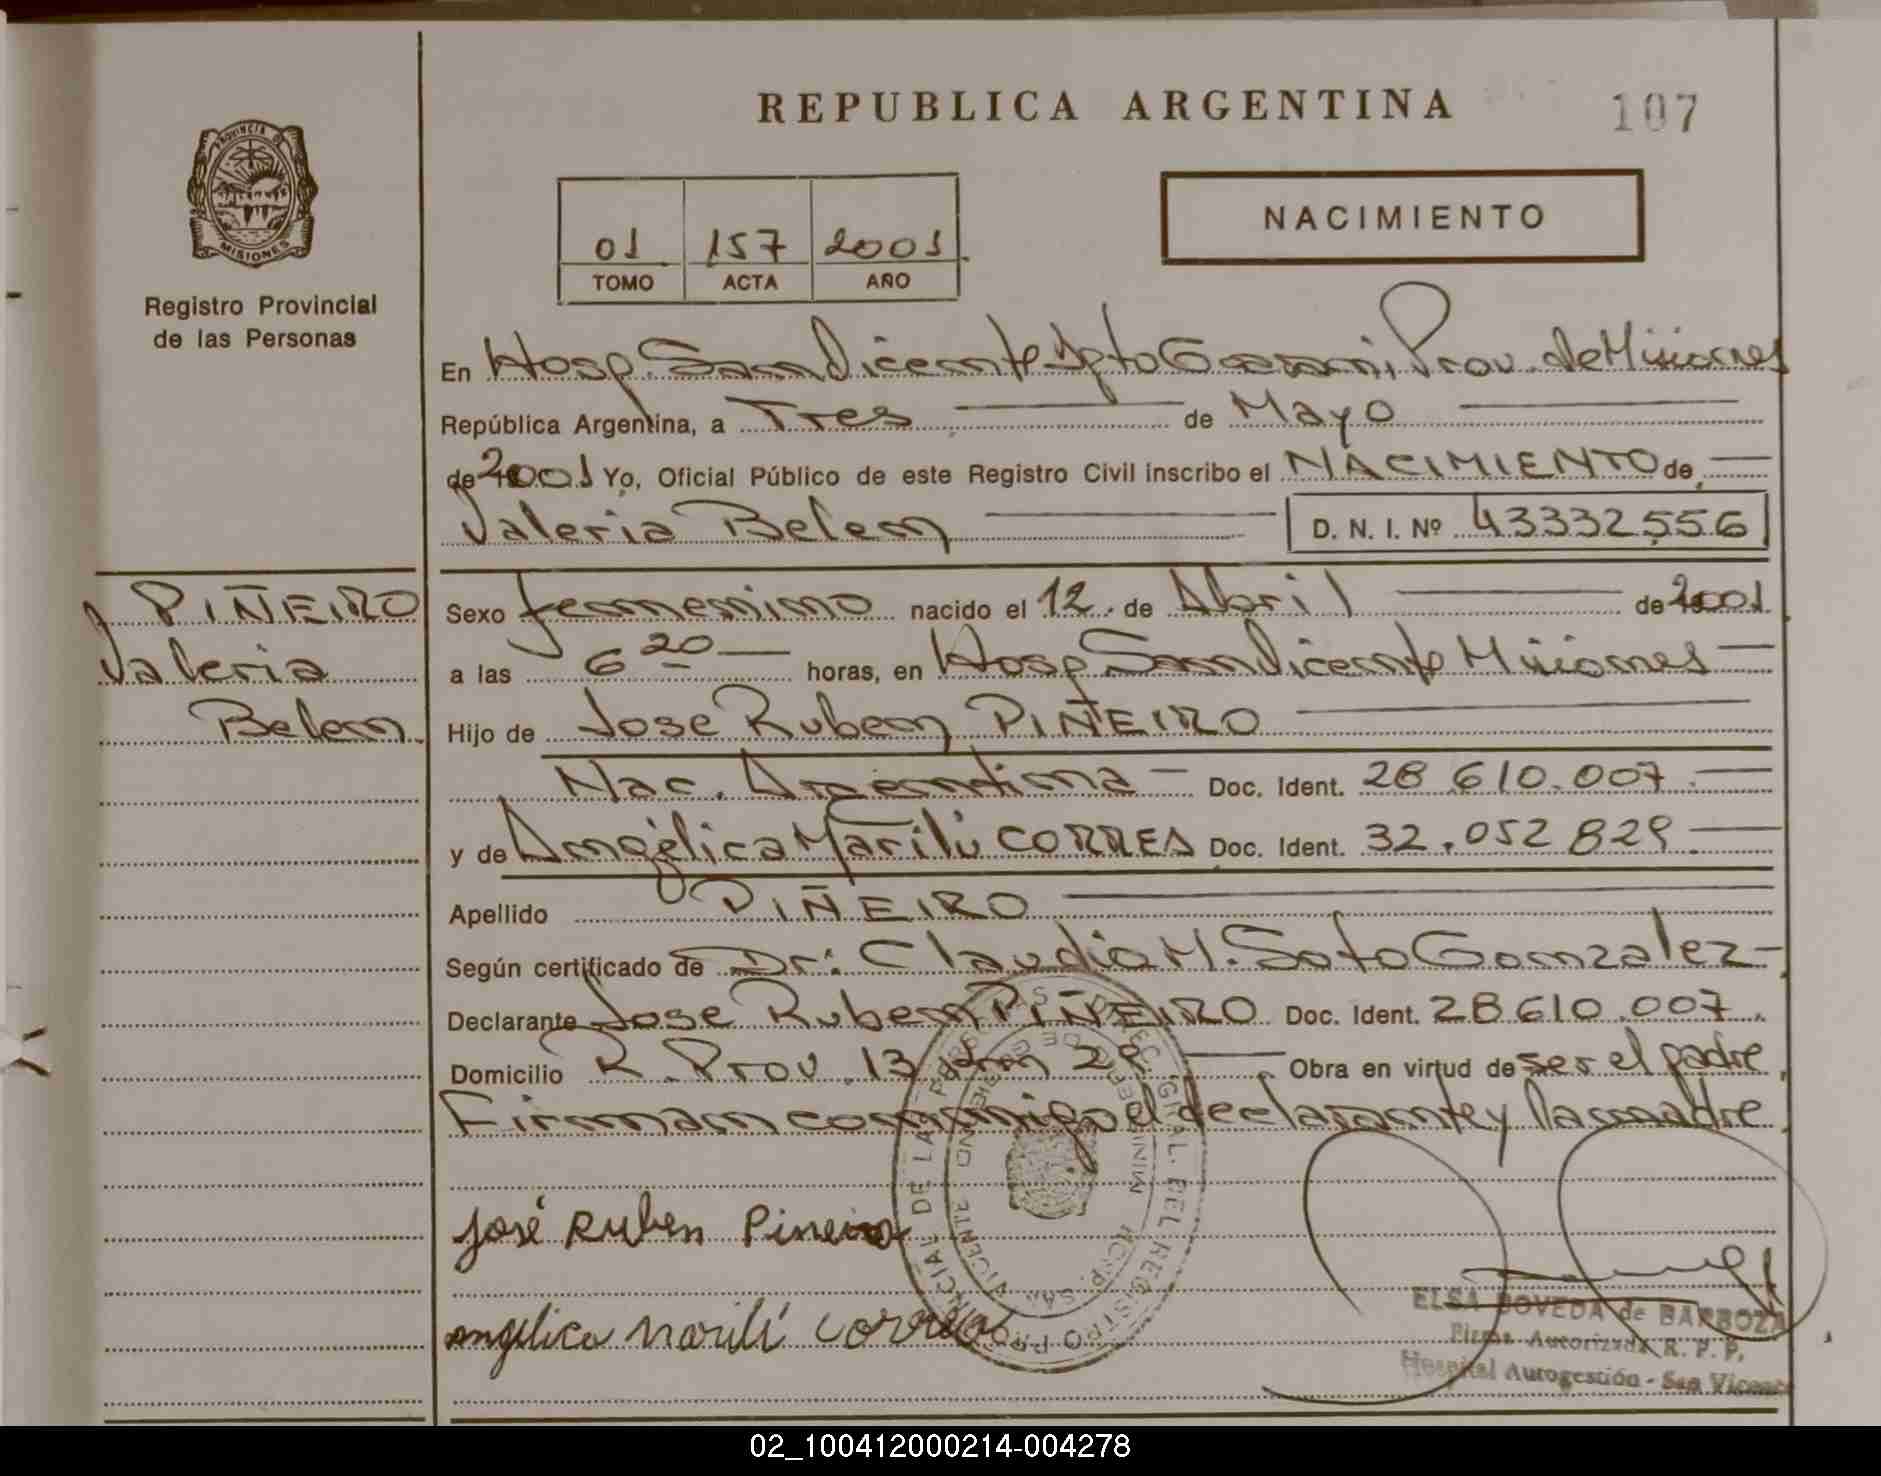 REPUBLICA ARGENTINA
107
PROVINCIA DE
MISIONES
Registro Provincial
de las Personas
01 157 2001
TOMO ACTA AÑO
NACIMIENTO
En Hosp. San Vicente Dpto Guarani, Prov. de Misiones
República Argentina, a Tres de Mayo
de 2001 Yo, Oficial Público de este Registro Civil inscribo el NACIMIENTO de
Valeria Belen D. N. I. Nº 43332556
PIÑEIRO
Valeria
Belen
Sexo femenino nacido el 12 de Abril de 2001
a las 6 20 horas, en Hosp. San Vicente Misiones
Hijo de Jose Ruben PIÑEIRO
Nac. Argentina Doc. Ident. 28 610.007
y de Angélica Marilú CORREA Doc. Ident. 32.052 829
Apellido PIÑEIRO
Según certificado de Dr: Claudio M. Soto Gonzalez
Declarante Jose Ruben PIÑEIRO Doc. Ident. 28 610.007
Domicilio R. Prov. 13 Km 29 Obra en virtud de ser el padre
Firman conmigo el declarante y la madre
José Ruben Pineiro
angelica marili correa
ELSA BOVEDA de BARBOZA
Firma Autorizada R. P. P.
Hospital Autogestión - San Vicente
02_100412000214-004278